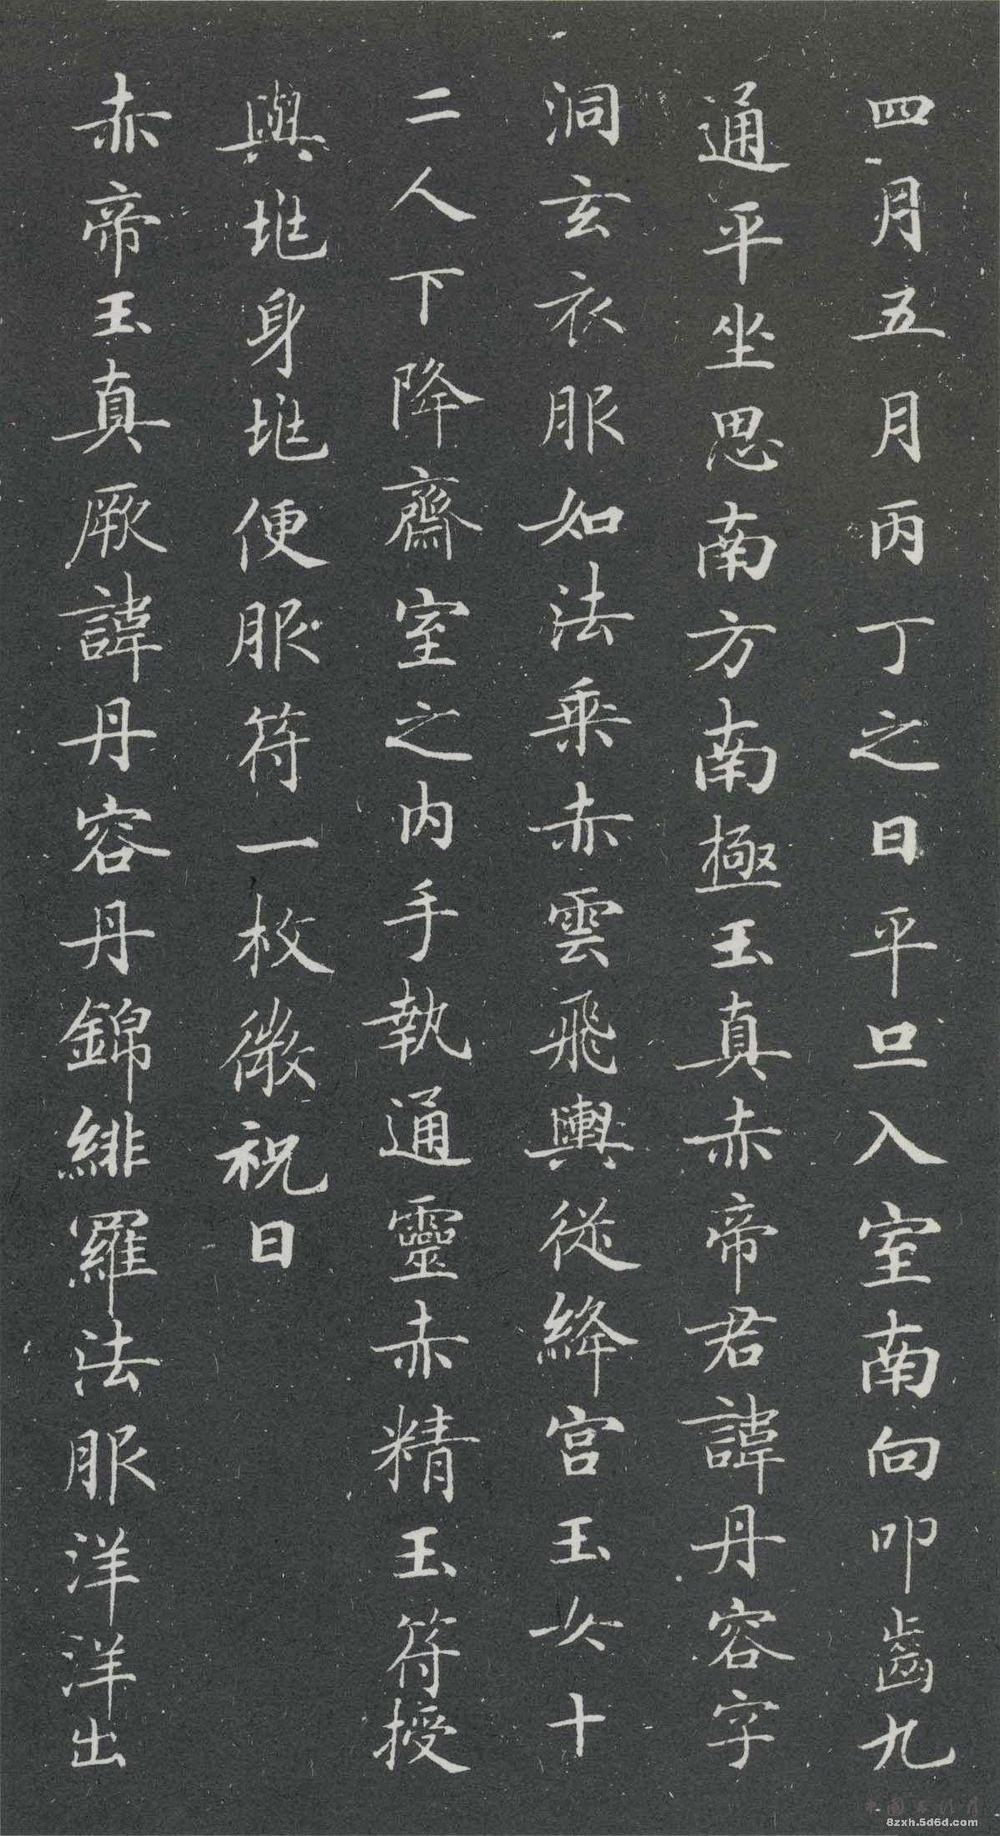 四月五月丙丁之日平旦入室南向叩齒九
通平坐思南方南極玉真赤帝君諱丹容字
洞玄衣服如法乘赤雲飛輿從絳宮玉女十
二人下降齋室之內手執通靈赤精玉符授
與地身地便服符一枚微祝曰
赤帝玉真厥諱丹容丹錦緋羅法服洋洋出
8zxh.5d6d.com